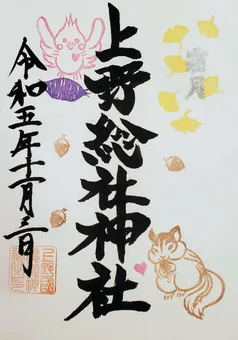 霜月
上野総社神社
令和五年十一月三日